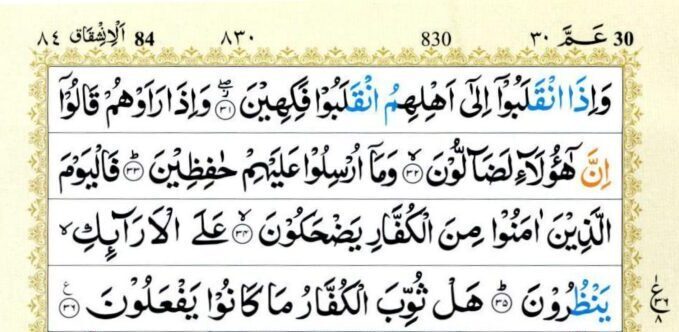 30 عَمَّ ٣٠ 830 ٨٣٠ 84 اَلْاِنْشِقَاق ٨٤
وَاِذَا انْقَلَبُوْۤا اِلٰۤى اَهْلِهِمُ انْقَلَبُوْا فَكِهِيْنَ ۖ۝٣١ وَاِذَا رَاَوْهُمْ قَالُوْۤا
اِنَّ هٰۤؤُلَآءِ لَضَآلُّوْنَ ۙ۝٣٢ وَمَاۤ اُرْسِلُوْا عَلَيْهِمْ حٰفِظِيْنَ ؕ۝٣٣ فَالْيَوْمَ
الَّذِيْنَ اٰمَنُوْا مِنَ الْكُفَّارِ يَضْحَكُوْنَ ۙ۝٣٤ عَلَى الْاَرَآئِكِ ۙ
يَنْظُرُوْنَ ؕ۝٣٥ هَلْ ثُوِّبَ الْكُفَّارُ مَا كَانُوْا يَفْعَلُوْنَ ۝٣٦